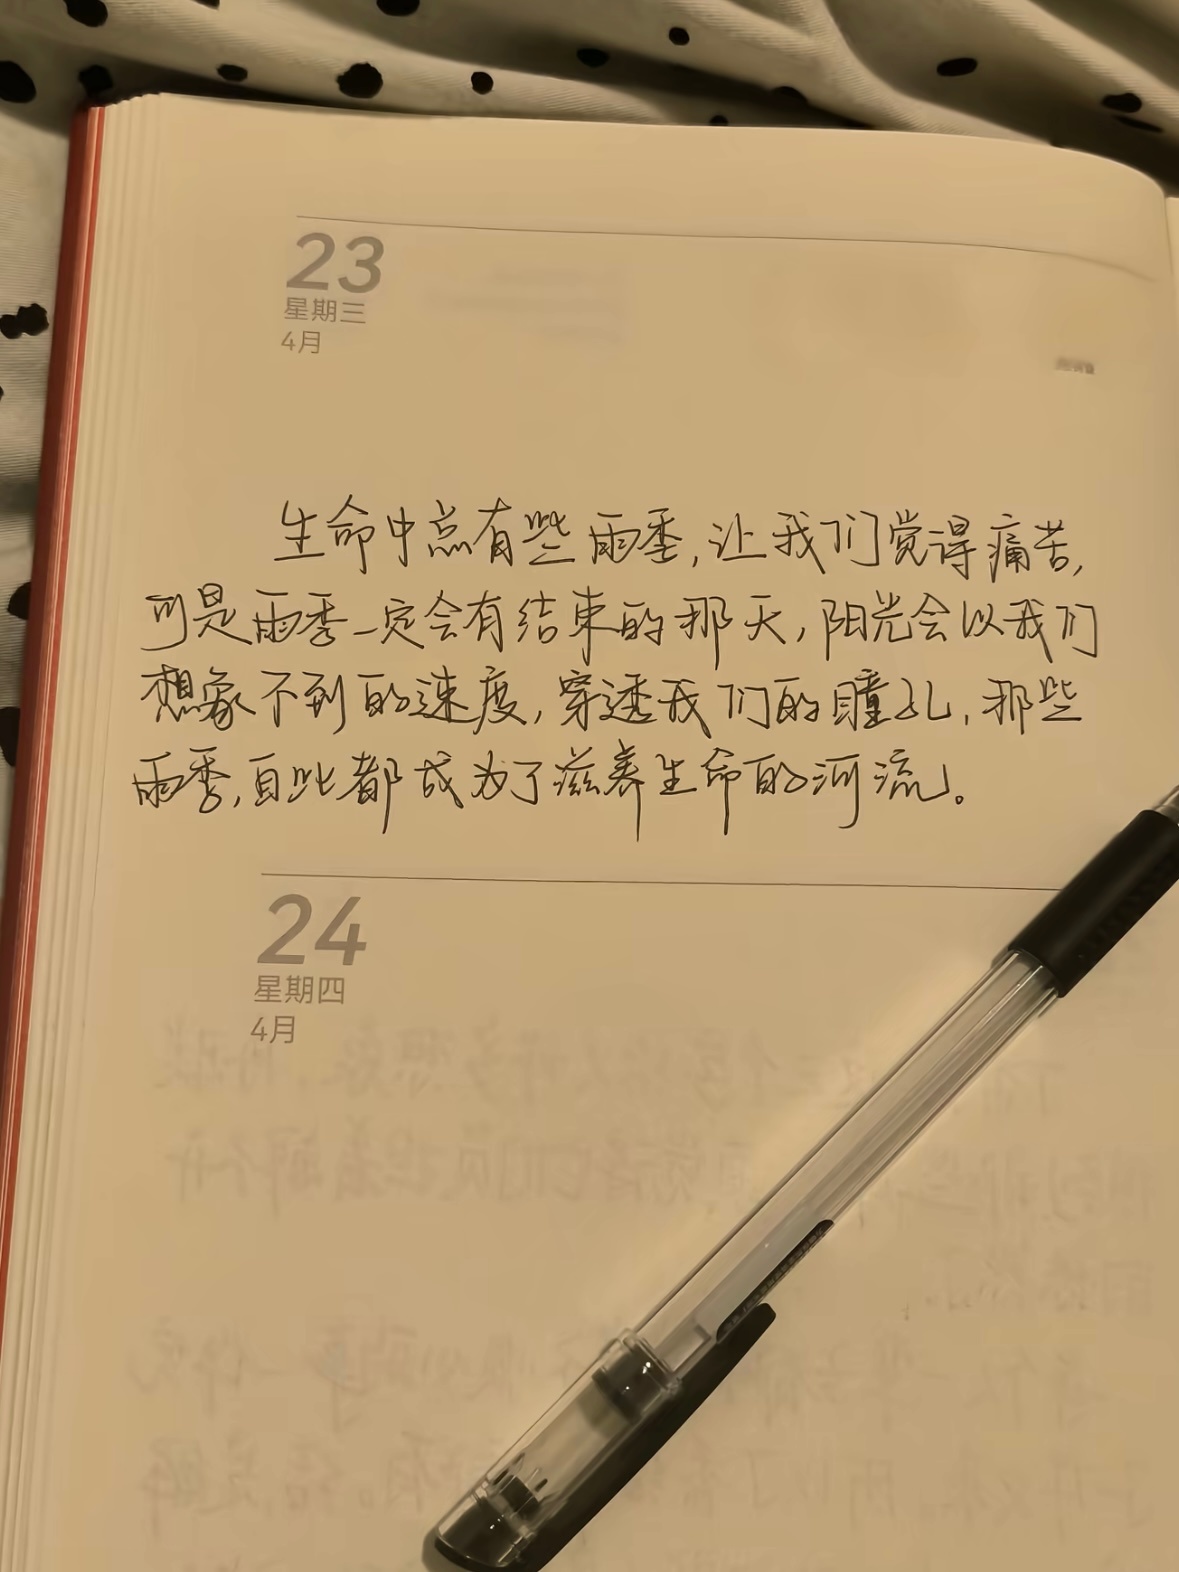 23
星期三
4月
生命中总有些雨季,让我们觉得痛苦,
可是雨季一定会有结束的那天,阳光会以我们
想象不到的速度,穿透我们的瞳孔,那些
雨季,自此都成为了滋养生命的河流。
24
星期四
4月